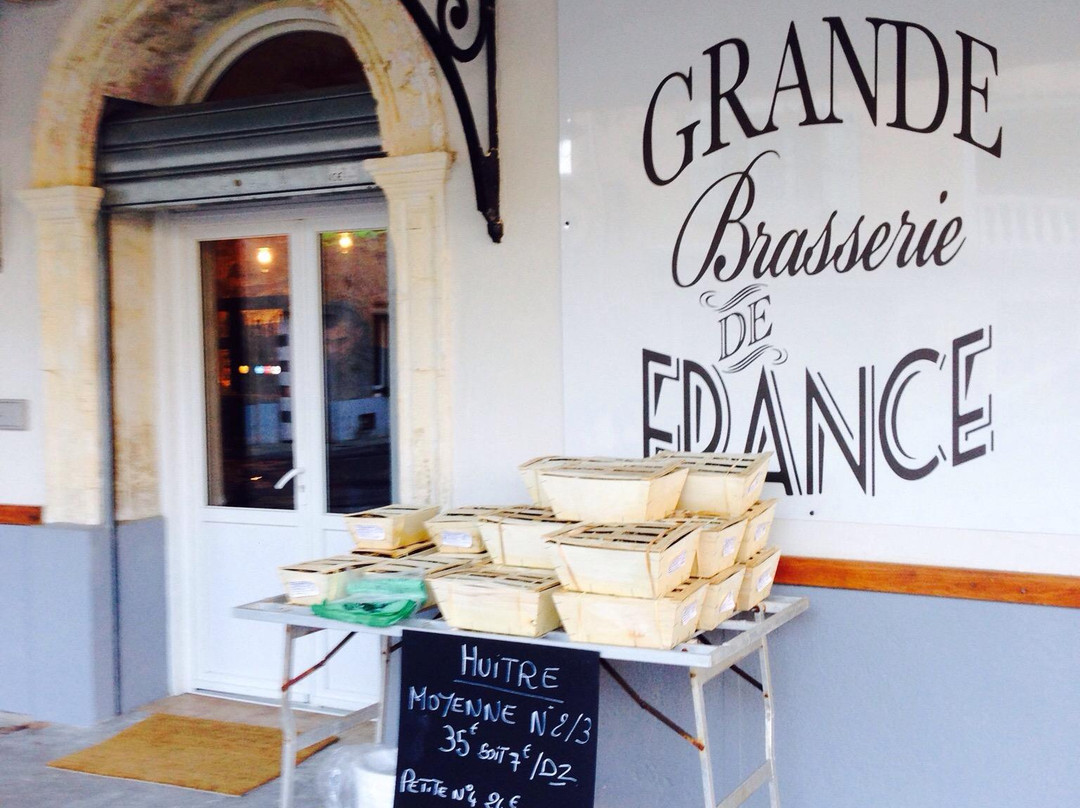 GRANDE
Brasserie
DE
FRANCE
HUITRE
MOYENNE N°2/3
35€ SOIT 7€/DZ
PETITE N°4